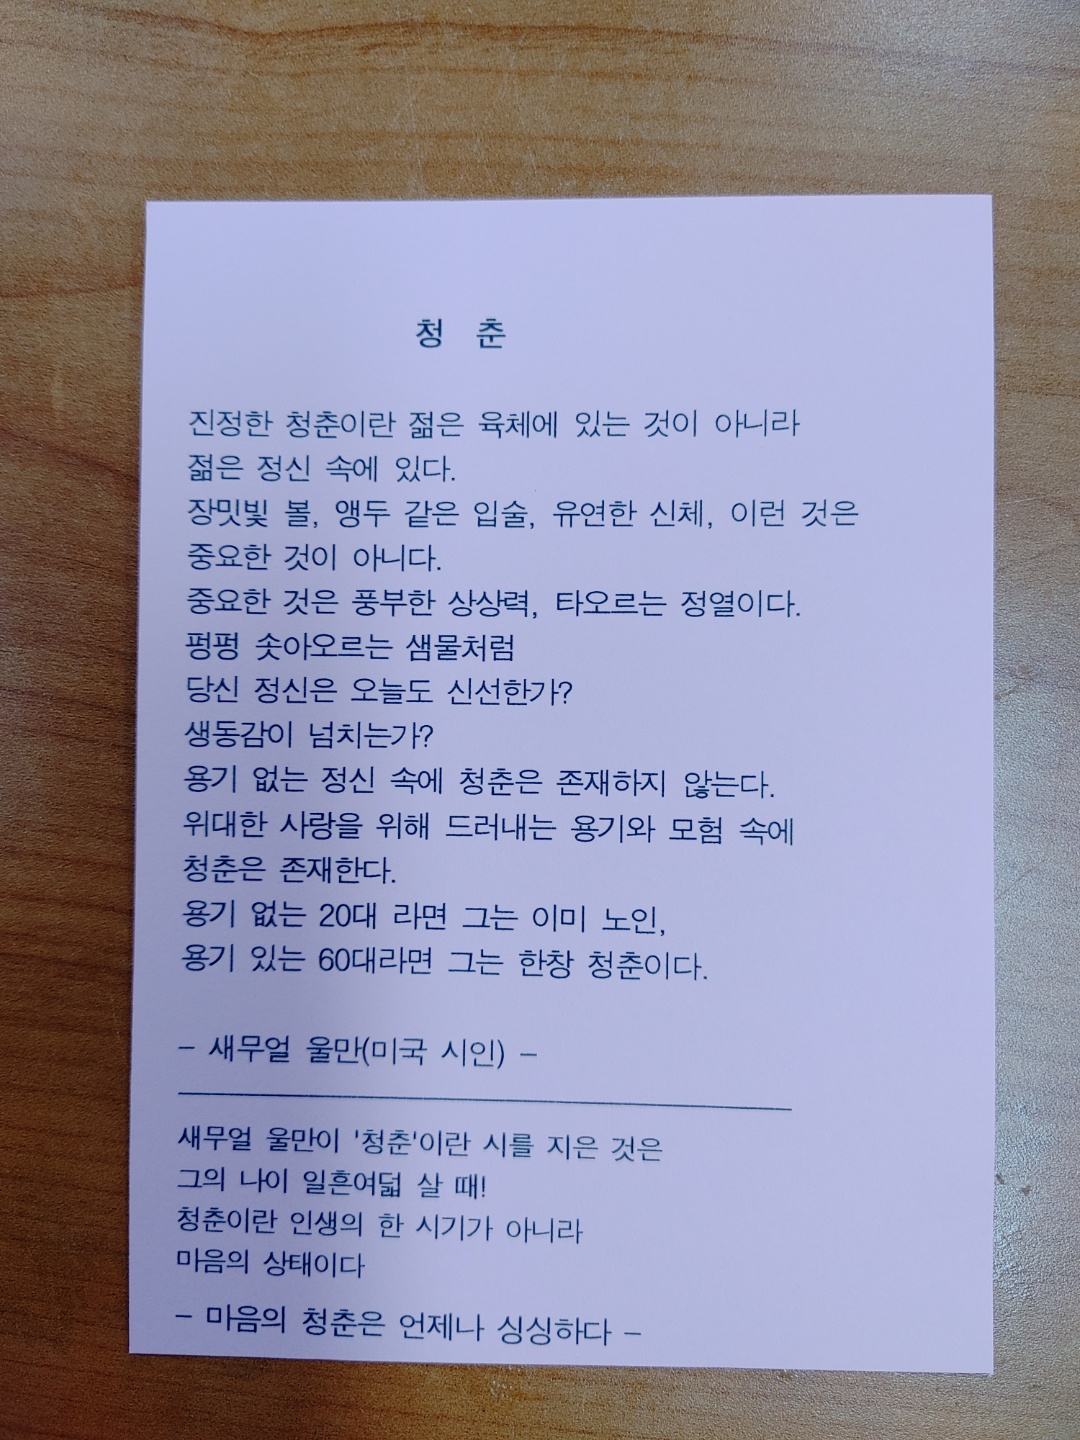 청 춘
진정한 청춘이란 젊은 육체에 있는 것이 아니라
젊은 정신 속에 있다.
장밋빛 볼, 앵두 같은 입술, 유연한 신체, 이런 것은
중요한 것이 아니다.
중요한 것은 풍부한 상상력, 타오르는 정열이다.
펑펑 솟아오르는 샘물처럼
당신 정신은 오늘도 신선한가?
생동감이 넘치는가?
용기 없는 정신 속에 청춘은 존재하지 않는다.
위대한 사랑을 위해 드러내는 용기와 모험 속에
청춘은 존재한다.
용기 없는 20대 라면 그는 이미 노인,
용기 있는 60대라면 그는 한창 청춘이다.
– 새무얼 울만(미국 시인) –
새무얼 울만이 '청춘'이란 시를 지은 것은
그의 나이 일흔여덟 살 때!
청춘이란 인생의 한 시기가 아니라
마음의 상태이다
– 마음의 청춘은 언제나 싱싱하다 –